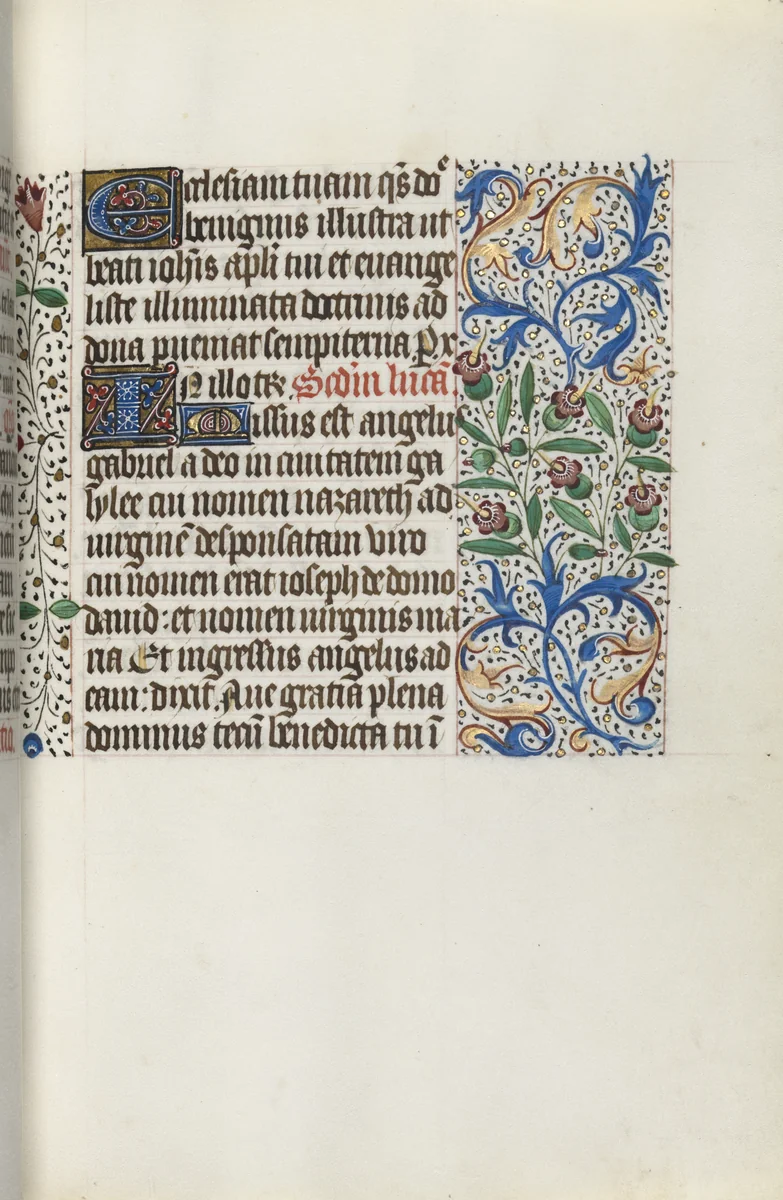 Ecclesiam tuam q̄s dn̄e
benignus illustra ut
beati ioh̄is apl̄i tui et euange
liste illuminata doctrinis ad
dona p̲ueniat sempiterna P̲ x̄
IN illo tp̲r̄e Scd̄m lucā
Missus est angelus
gabriel a deo in ciuitatem ga
lylee cui nomen nazareth ad
uirginē desponsatam viro
cui nomen erat ioseph de domo
dauid : et nomen uirginis ma
ria Et ingressus angelus ad
eam : dixit Aue gratia plena
dominus tecū benedicta tu ī